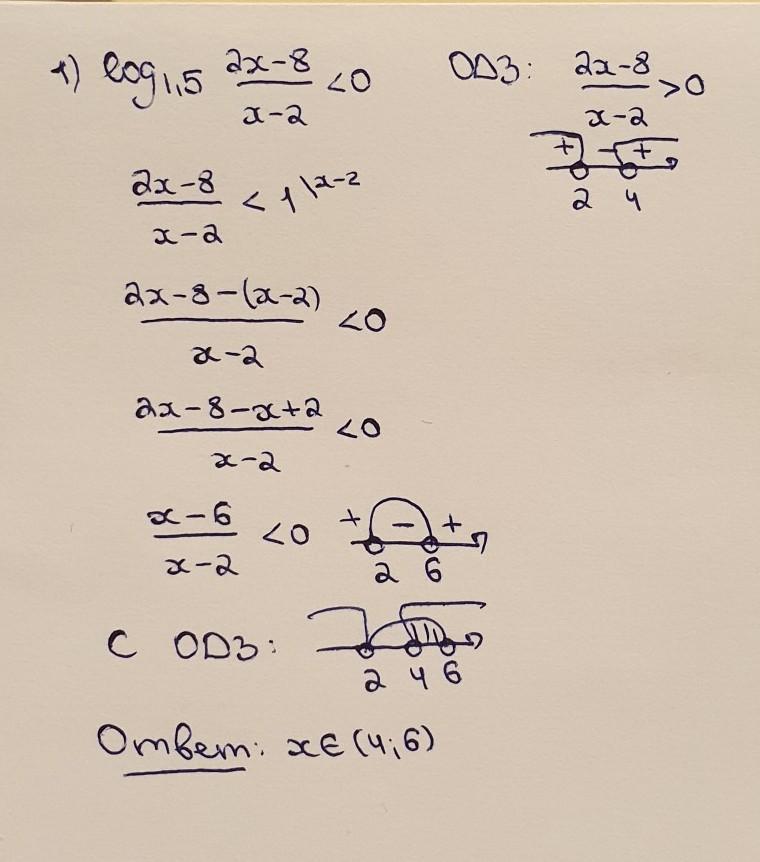 1) log₁,₅ (2x-8)/(x-2) <0   ОДЗ: (2x-8)/(x-2) >0
+ - +
2 4
(2x-8)/(x-2) < 1 \x-2
(2x-8-(x-2))/(x-2) <0
(2x-8-x+2)/(x-2) <0
(x-6)/(x-2) <0   + - +
2 6
С ОДЗ:
2 4 6
Ответ: x∈(4;6)